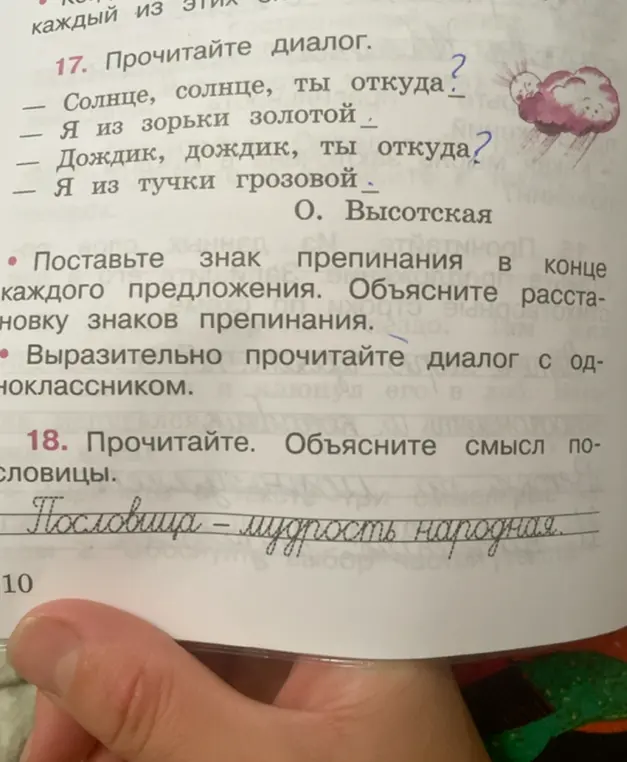 каждый из этих
17. Прочитайте диалог.
— Солнце, солнце, ты откуда?
— Я из зорьки золотой.
— Дождик, дождик, ты откуда?
— Я из тучки грозовой.
О. Высотская
• Поставьте знак препинания в конце
каждого предложения. Объясните расста-
новку знаков препинания.
• Выразительно прочитайте диалог с од-
ноклассником.
18. Прочитайте. Объясните смысл по-
словицы.
Пословица – мудрость народная.
10